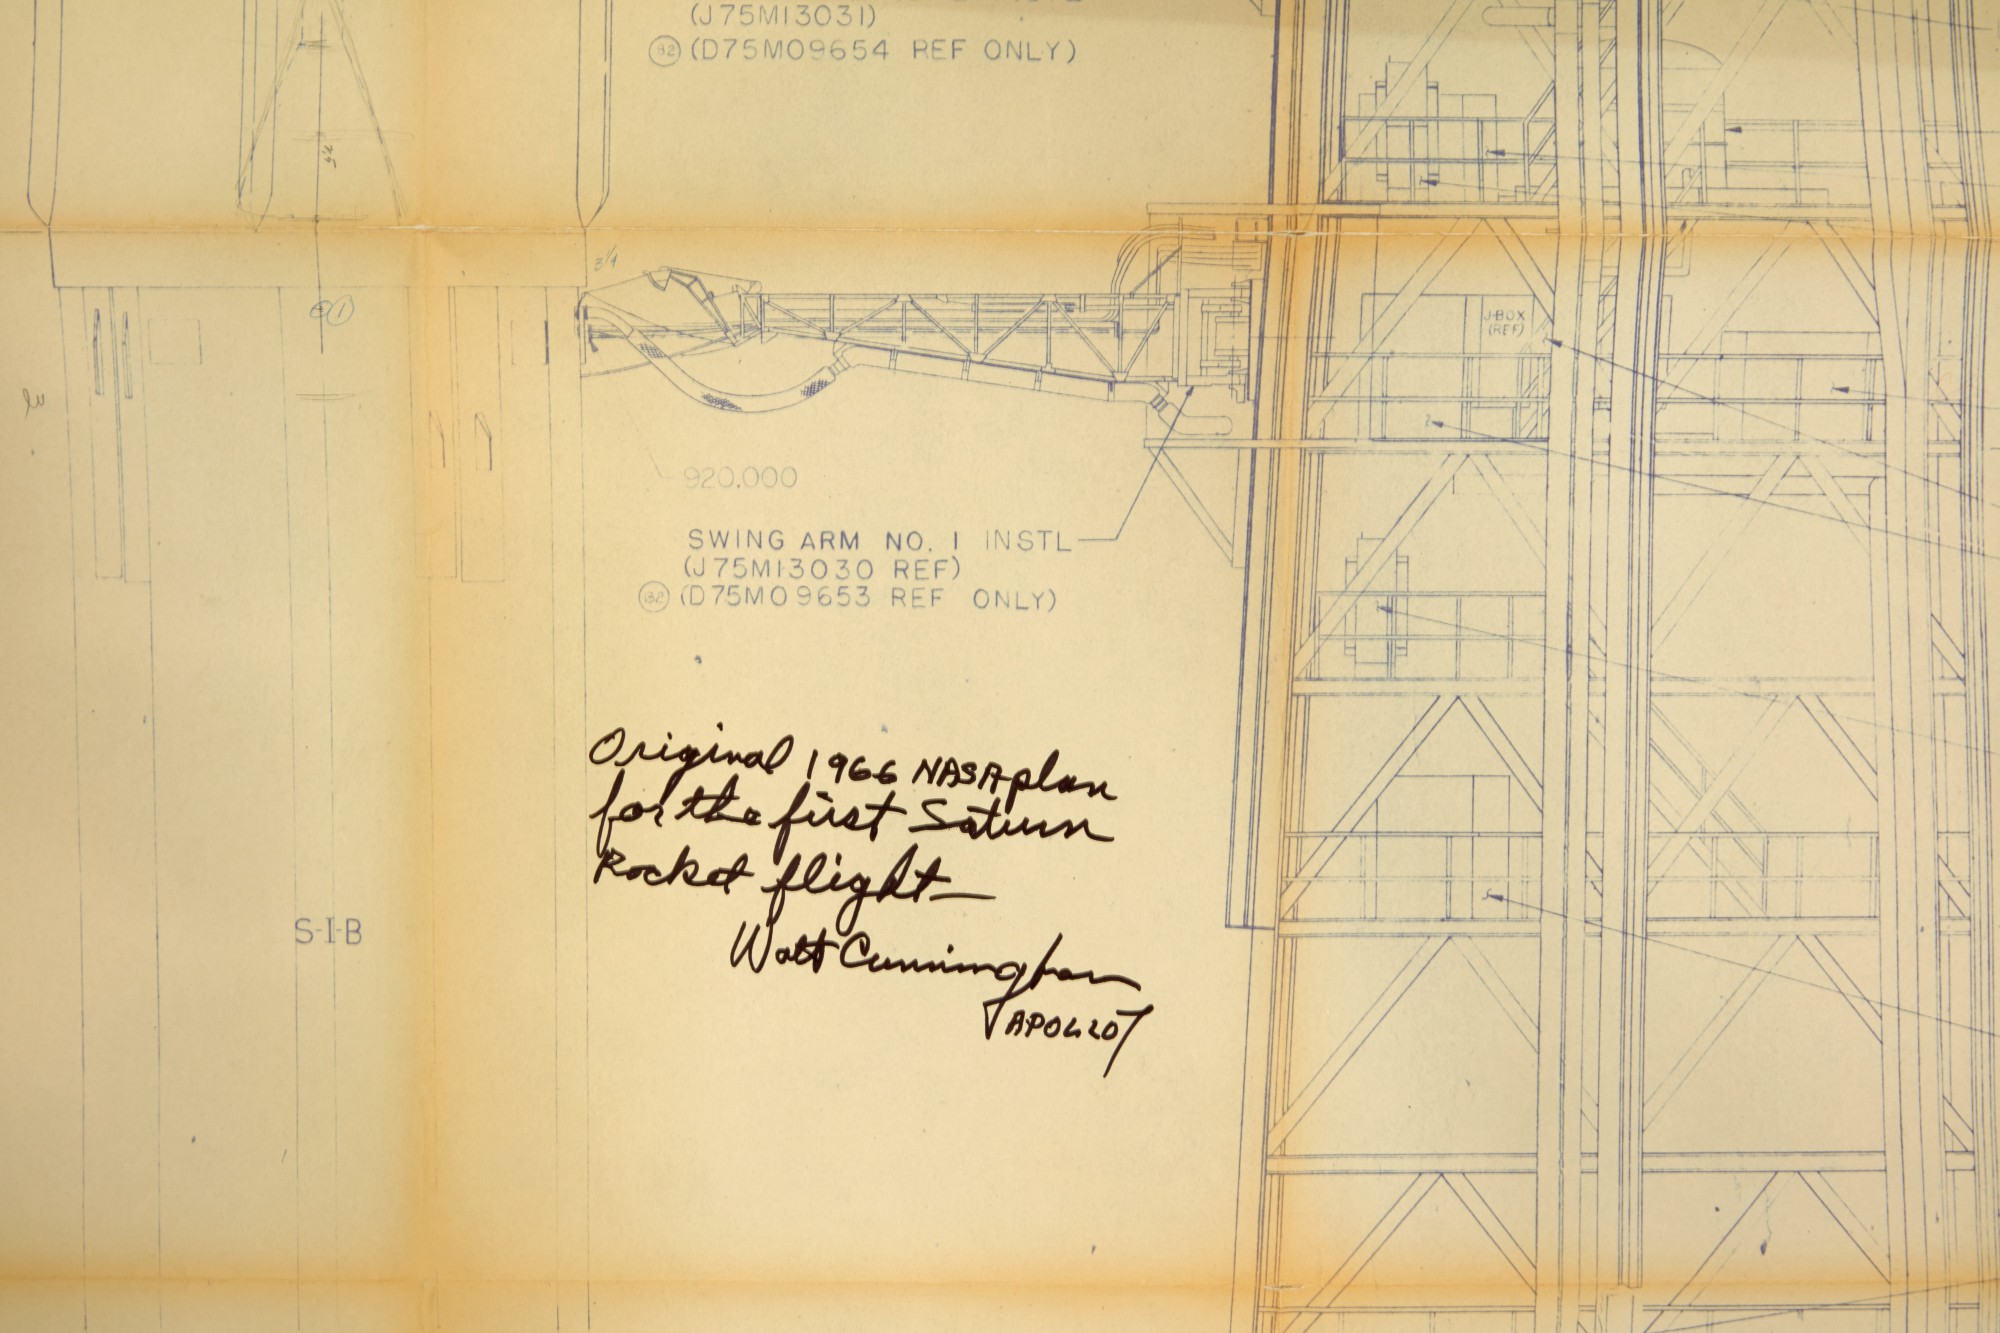 (J75M13031)
82 (D75M09654 REF ONLY)
3/4
1
J-BOX
(REF)
920.000
SWING ARM NO. 1 INSTL
(J75M13030 REF)
82 (D75M09653 REF ONLY)
Original 1966 NASA plan
for the first Saturn
Rocket flight—
Walt Cunningham
APOLLO 7
S-I-B